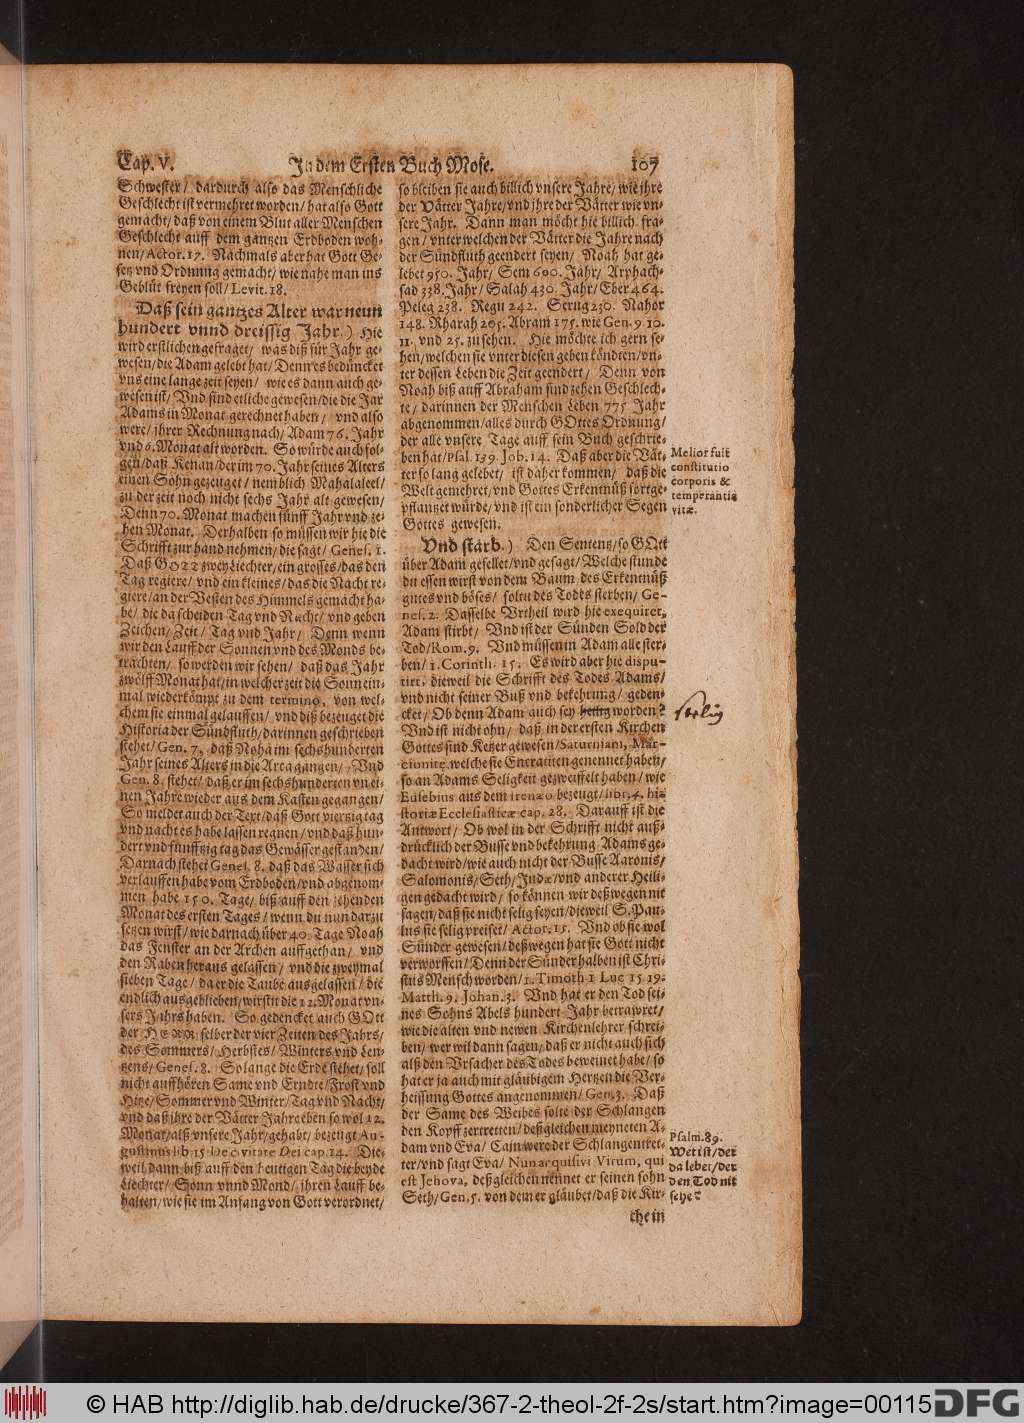 Cap. V. In dem Ersten Buch Mose. 107
Schwester/ dardurch also das Menschliche
Geschlecht ist vermehret worden/ hat also Gott
gemacht/ daß von einem Blut aller Menschen
Geschlecht auff dem gantzen Erdboden woh-
nen/Actor. 17. Nachmals aber hat Gott Ge-
setz vnd Ordnung gemacht/ wie nahe man ins
Geblüt freyen soll/ Levit. 18.
Daß sein gantzes Alter war neun
hundert vnnd dreissig Jahr.) Hie
wird erstlichen gefraget/ was diß für Jahr ge-
wesen/die Adam gelebt hat/ Denn es bedüncket
vns eine lange zeit seyen/ wie es dann auch ge-
wesen ist/ Vnd sind etliche gewesen/die die Jar
Adams in Monat gerechnet haben/ vnd also
were/ jhrer Rechnung nach/ Adam 76. Jahr
vnd 6. Monat alt worden. So würde auch fol-
gen/daß Kenan/der im 70. Jahr seines Alters
einen Sohn gezeuget/ nemblich Mahalaleel/
zu der zeit noch nicht sechs Jahr alt gewesen/
Denn 70. Monat machen fünff Jahr vnd ze-
hen Monat. Derhalben so müssen wir hie die
Schrifft zur hand nehmen/die sagt/ Genes. 1.
Daß GOTT zwey Liechter/ein grosses/das den
Tag regiere/ vnd ein kleines/das die Nacht re-
giere/an der Vesten des Himmels gemacht ha-
be/ die da scheiden Tag vnd Nacht/ vnd geben
Zeichen/ Zeit/ Tag vnd Jahr/ Denn wenn
wir den Lauff der Sonnen vnd des Monds be-
trachten/ so werden wir sehen/ daß das Jahr
zwölff Monat hat/in welcher zeit die Sonn ein-
mal wiederkömpt zu dem termino, von wel-
chem sie einmal gelauffen/ vnd diß bezeuget die
Historia der Sündfluth/darinnen geschrieben
stehet/ Gen. 7. daß Noha im sechshunderten
Jahr seines Alters in die Arca gangen/ Vnd
Gen. 8. stehet/ daß er im sechshunderten vn ei-
nen Jahre wieder aus dem Kasten gegangen/
So meldet auch der Text/daß Gott viertzig tag
vnd nacht es habe lassen regnen/vnd daß hun-
dert vnd fünfftzig tag das Gewässer gestanden/
Darnach stehet Genes. 8. daß das Wasser sich
verlauffen habe vom Erdboden/vnd abgenom-
men habe 150. Tage/ biß auff den zehenden
Monat des ersten Tages/ wenn du nun darzu
setzen wirst/ wie darnach über 40. Tage Noah
das Fenster an der Archen auffgethan/ vnd
den Raben heraus gelassen/ vnd die zweymal
sieben Tage/ da er die Taube ausgelassen/ die
endlich ausgeblieben/wirstu die 12. Monat vn-
sers Jahrs haben. So gedencket auch GOtt
der HERR selber der vier Zeiten des Jahrs/
des Sommers/ Herbstes/ Winters vnd Len-
tzens/ Genes. 8. So lange die Erde stehet/ soll
nicht auffhören Same vnd Erndte/Frost vnd
Hitze/ Sommer vnd Winter/Tag vnd Nacht/
vnd daß jhre der Vätter Jahre eben so wol 12.
Monat/alß vnsere Jahr/gehabt/ bezeugt Au-
gustinus lib 15 De civitate Dei cap. 14. Die-
weil dann biß auff den heutigen Tag die beyde
Liechter/ Sonn vnnd Mond/ jhren Lauff be-
halten/wie sie im Anfang von Gott verordnet/
so bleiben sie auch billich vnsere Jahre/ wie jhre
der Vätter Jahre/vnd jhre der Vätter wie vn-
sere Jahr. Dann man möcht hie billich fra-
gen/ vnter welchen der Vätter die Jahre nach
der Sündfluth geendert seyen/ Noah hat ge-
lebet 950. Jahr/ Sem 600. Jahr/ Arphach-
sad 338. Jahr/ Salah 430. Jahr/ Eber 464.
Peleg 238. Regu 242. Serug 230. Nahor
148. Tharah 205. Abram 175. wie Gen. 9. 10.
11. vnd 25. zu sehen. Hie möchte ich gern se-
hen/welchen sie vnter diesen geben köndten/vn-
ter dessen Leben die Zeit geendert/ Denn von
Noah biß auff Abraham sind zehen Geschlech-
te/ darinnen der Menschen Leben 775 Jahr
abgenommen/alles durch GOttes Ordnung/
der alle vnsere Tage auff sein Buch geschrie-
ben hat/Psal. 139. Job. 14. Daß aber die Vät-
ter so lang gelebet/ ist daher kommen/ daß die
Welt gemehret/vnd Gottes Erkentnüß fortge-
pflantzet würde/ vnd ist ein sonderlicher Segen
Gottes gewesen.
Vnd starb.) Den Sententz/so GOtt
über Adam gefellet/vnd gesagt/ Welche stunde
du essen wirst von dem Baum des Erkentnüß
gutes vnd böses/ soltu des Todes sterben/ Ge-
nes. 2. Dasselbe Vrtheil wird hie exequiret,
Adam stirbt/ Vnd ist der Sünden Sold der
Tod/Rom. 9. Vnd müssen in Adam alle ster-
ben/ 1. Corinth. 15. Es wird aber hie dispu-
tirt, dieweil die Schrifft des Todes Adams/
vnd nicht seiner Buß vnd bekehrung/ geden-
cket/ Ob denn Adam auch sey heilig worden?
Vnd ist nicht ohn/ daß in der ersten Kirchen
Gottes sind Ketzer gewesen/Saturniani, Mar-
cionitæ, welche sie Encratiten genennet haben/
so an Adams Seligkeit gezweiffelt haben/ wie
Eusebius aus dem Irenæo bezeugt/libr. 4. hi-
storiæ Ecclesiasticæ cap. 28. Darauff ist die
Antwort/ Ob wol in der Schrifft nicht auß-
drücklich der Busse vnd bekehrung Adams ge-
dacht wird/wie auch nicht der Busse Aaronis/
Salomonis/ Seth/Judæ/vnd anderer Heili-
gen gedacht wird/ so können wir deßwegen nit
sagen/daß sie nicht selig seyen/dieweil S. Pau-
lus sie selig preiset/ Actor. 15. Vnd ob sie wol
Sünder gewesen/deßwegen hat sie Gott nicht
verworffen/ Denn der Sünder halben ist Chri-
stus Mensch worden/1. Timoth 1 Luc. 15 19.
Matth. 9. Johan. 3. Vnd hat er den Tod sei-
nes Sohns Abels hundert Jahr betrawret/
wie die alten vnd newen Kirchenlehrer schrei-
ben/ wer wil dann sagen/daß er nicht auch sich
alß den Vrsacher des Todes beweinet habe/ so
hat er ja auch mit gläubigem Hertzen die Ver-
heissung Gottes angenommen/ Gen. 3. Daß
der Same des Weibes solte der Schlangen
den Kopff zertretten/deßgleichen meyneten A-
dam vnd Eva/ Cain were der Schlangentret-
ter/vnd sagt Eva/ Nunacquisivi Virum, qui
est Jehova, deßgleichen nennet er seinen sohn
Seth/Gen. 5. von dem er gläubet/daß die Kir-
che in
Melior fuit
constitutio
corporis &
temperantia
vitæ.
seelig
Psalm. 89.
Wer ist/der
da lebet/der
den Tod nit
sehe?
© HAB http://diglib.hab.de/drucke/367-2-theol-2f-2s/start.htm?image=00115
DFG